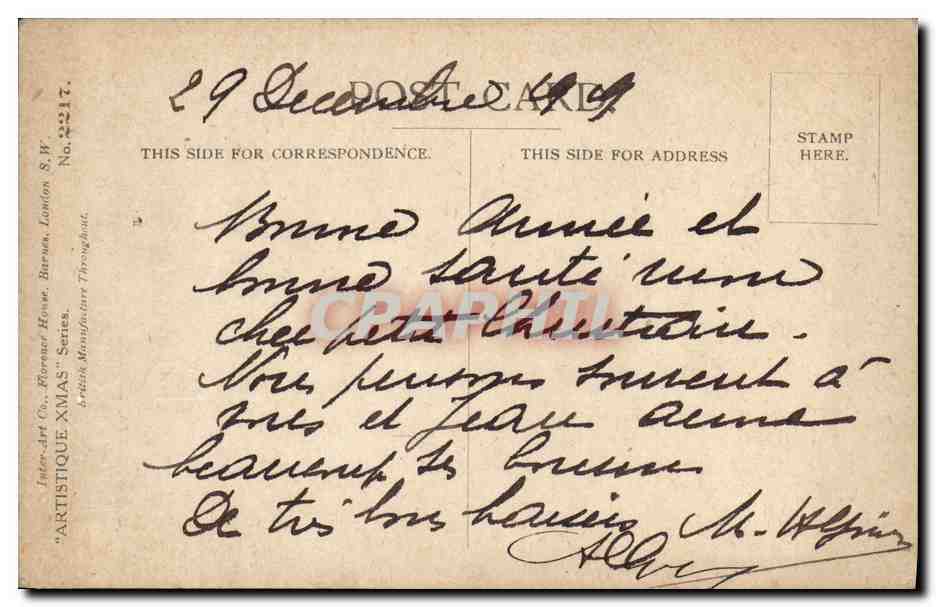 29 Decembre 1919
POST CARD
THIS SIDE FOR CORRESPONDENCE.
THIS SIDE FOR ADDRESS
STAMP
HERE.
Bonne année et
bonne santé mon
cher petit Christian.
Nous pensons souvent à
vous et Jean aime
beaucoup ses
De très bons baisers M.
CRAPHIL
Inter-Art Co., Florence House, Barnes, London S.W.
"ARTISTIQUE XMAS" Series. No. 2217.
British Manufacture Throughout.